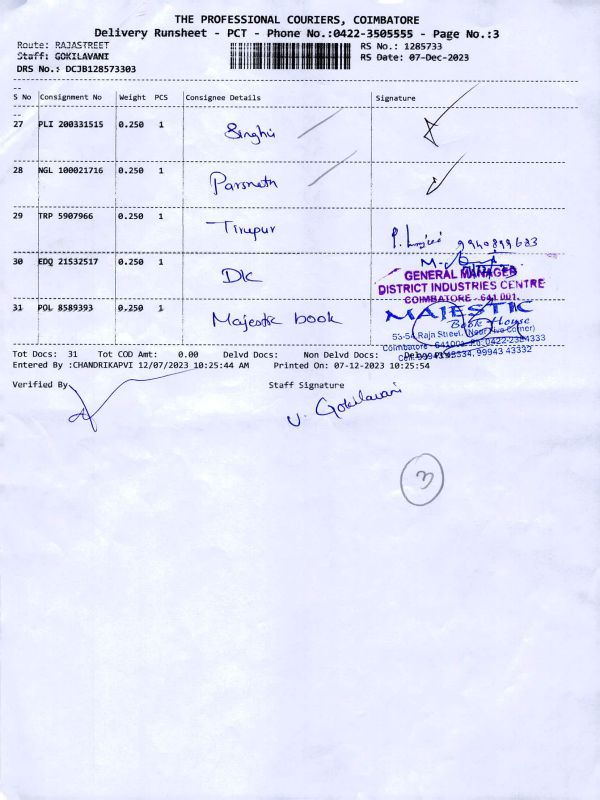 THE PROFESSIONAL COURIERS, COIMBATORE
Delivery Runsheet - PCT - Phone No.:0422-3505555 - Page No.:3
Route: RAJASTREET RS No.: 1285733
Staff: GOKILAVANI RS Date: 07-Dec-2023
DRS No.: DCJB128573303
S No Consignment No Weight PCS Consignee Details Signature
27 PLI 200331515 0.250 1 Singhvi
28 NGL 100021716 0.250 1 Parsnath
29 TRP 5907966 0.250 1 Tirupur
P. 9940899683
30 EDQ 21532517 0.250 1 DIC
GENERAL MANAGER
DISTRICT INDUSTRIES CENTRE
COIMBATORE - 641 001.
31 POL 8589393 0.250 1 Majestic book
MAJESTIC
Book House
53-54, Raja Street, (Near Five Corner)
Coimbatore - 641001. Ph: 0422-2384333
Cell: 99943 43334, 99943 43332
Tot Docs: 31 Tot COD Amt: 0.00 Delvd Docs: Non Delvd Docs:
Entered By :CHANDRIKAPVI 12/07/2023 10:25:44 AM Printed On: 07-12-2023 10:25:54
Verified By Staff Signature
V. Gokilavani
3